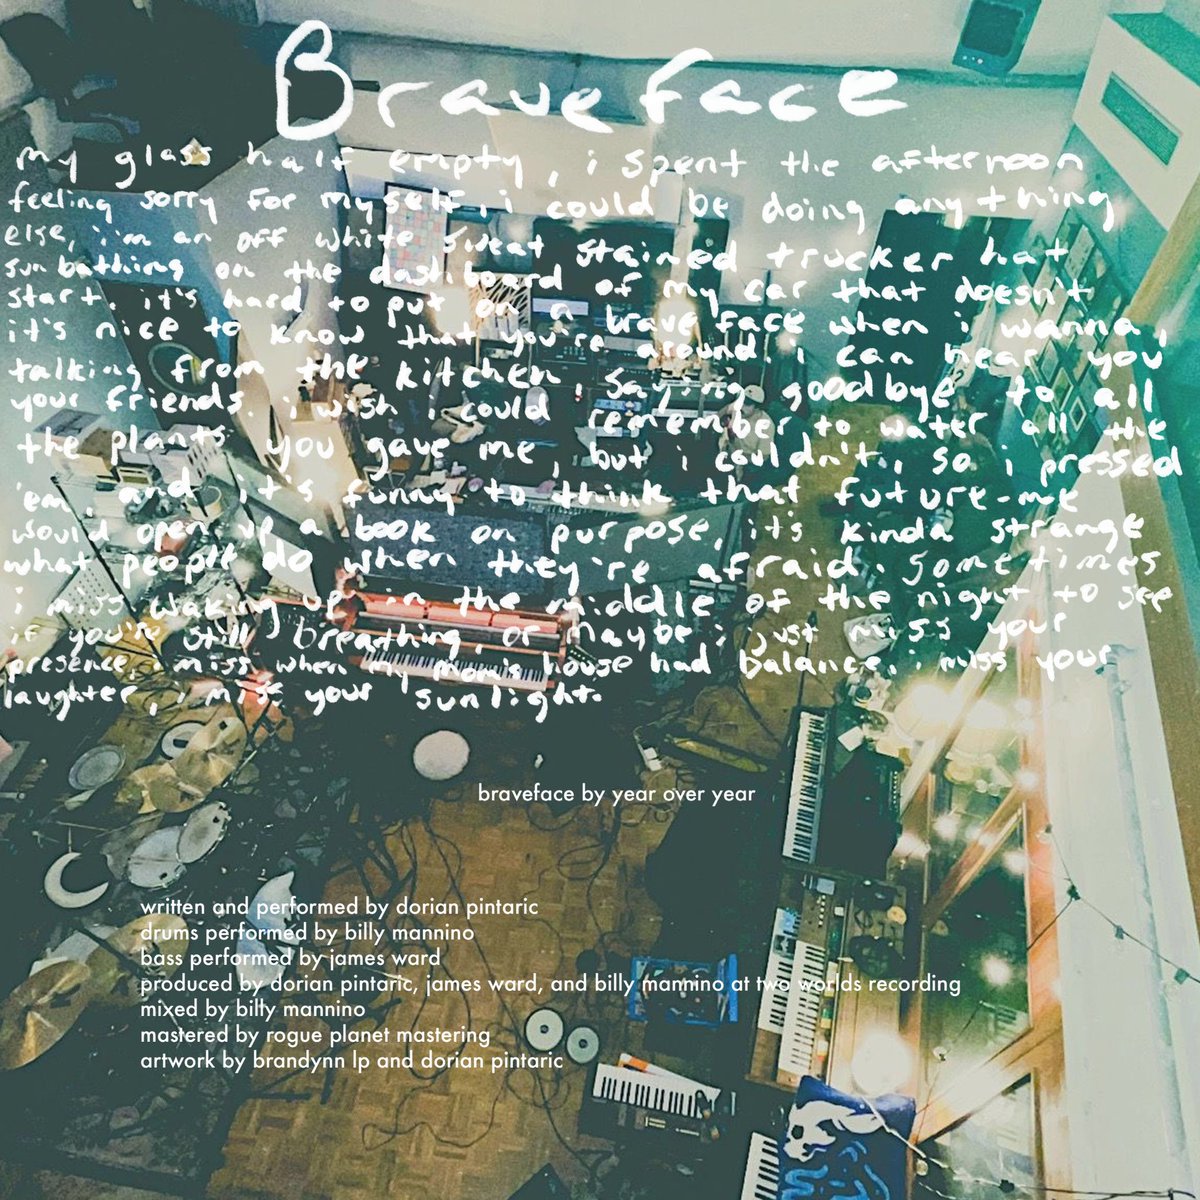 Braveface
my glass half empty, i spent the afternoon
feeling sorry for myself, i could be doing anything
else, i'm an off white sweat stained trucker hat
sunbathing on the dashboard of my car that doesn't
start. it's hard to put on a brave face when i wanna,
it's nice to know that you're around i can hear you
talking from the kitchen, saying goodbye to all
your friends. i wish i could remember to water all the
the plants you gave me, but i couldn't, so i pressed
'em, and it's funny to think that future-me
would open up a book on purpose, it's kinda strange
what people do when they're afraid. sometimes
i miss waking up in the middle of the night to see
if you're still breathing, or maybe i just miss your
presence, i miss when my mom's house had balance, i miss your
laughter, i miss your sunlight.
braveface by year over year
written and performed by dorian pintaric
drums performed by billy mannino
bass performed by james ward
produced by dorian pintaric, james ward, and billy mannino at two worlds recording
mixed by billy mannino
mastered by rogue planet mastering
artwork by brandynn lp and dorian pintaric